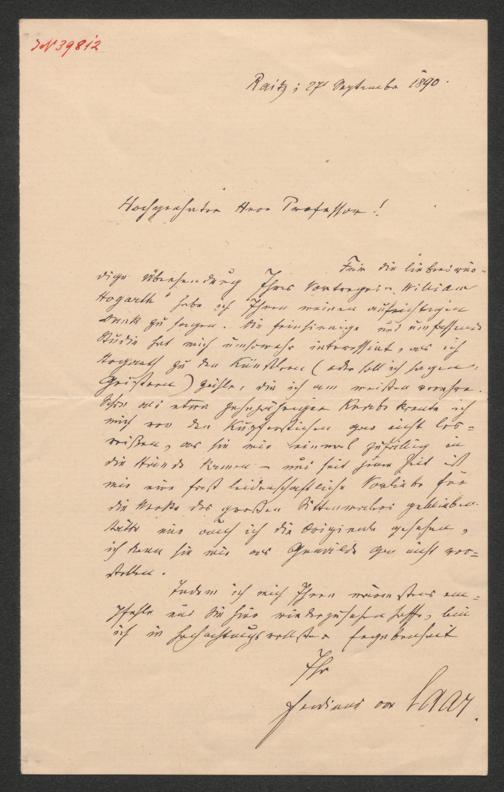 JN 39812
Raitz; 27 September 1890.
Hochgeehrter Herr Professor!
Für die liebenswür-
dige Übersendung Ihres Vortrages „William
Hogarth“ habe ich Ihnen meinen aufrichtigen
Dank zu sagen. Die feinsinnige und umfassende
Studie hat mich umsomehr interessirt, als ich
Hogarth zu den Künstlern (oder soll ich sagen:
Geistern) zähle, die ich am meisten verehre.
Schon als etwa zehnjähriger Knabe konnte ich
mich von den Kupferstichen gar nicht los-
reißen, als sie mir einmal zufällig in
die Hände kamen – und seit jener Zeit ist
mir eine fast leidenschaftliche Vorliebe für
die Werke des großen Sittenmalers geblieben.
Hätte nur auch ich die Originale gesehen,
ich kann sie mir als Gemälde gar nicht vor-
stellen.
Indem ich mich Ihnen wärmstens em-
pfehle und Sie hier wiederzusehen hoffe, bin
ich in hochachtungsvollster Ergebenheit
Ihr
Ferdinand von Saar.